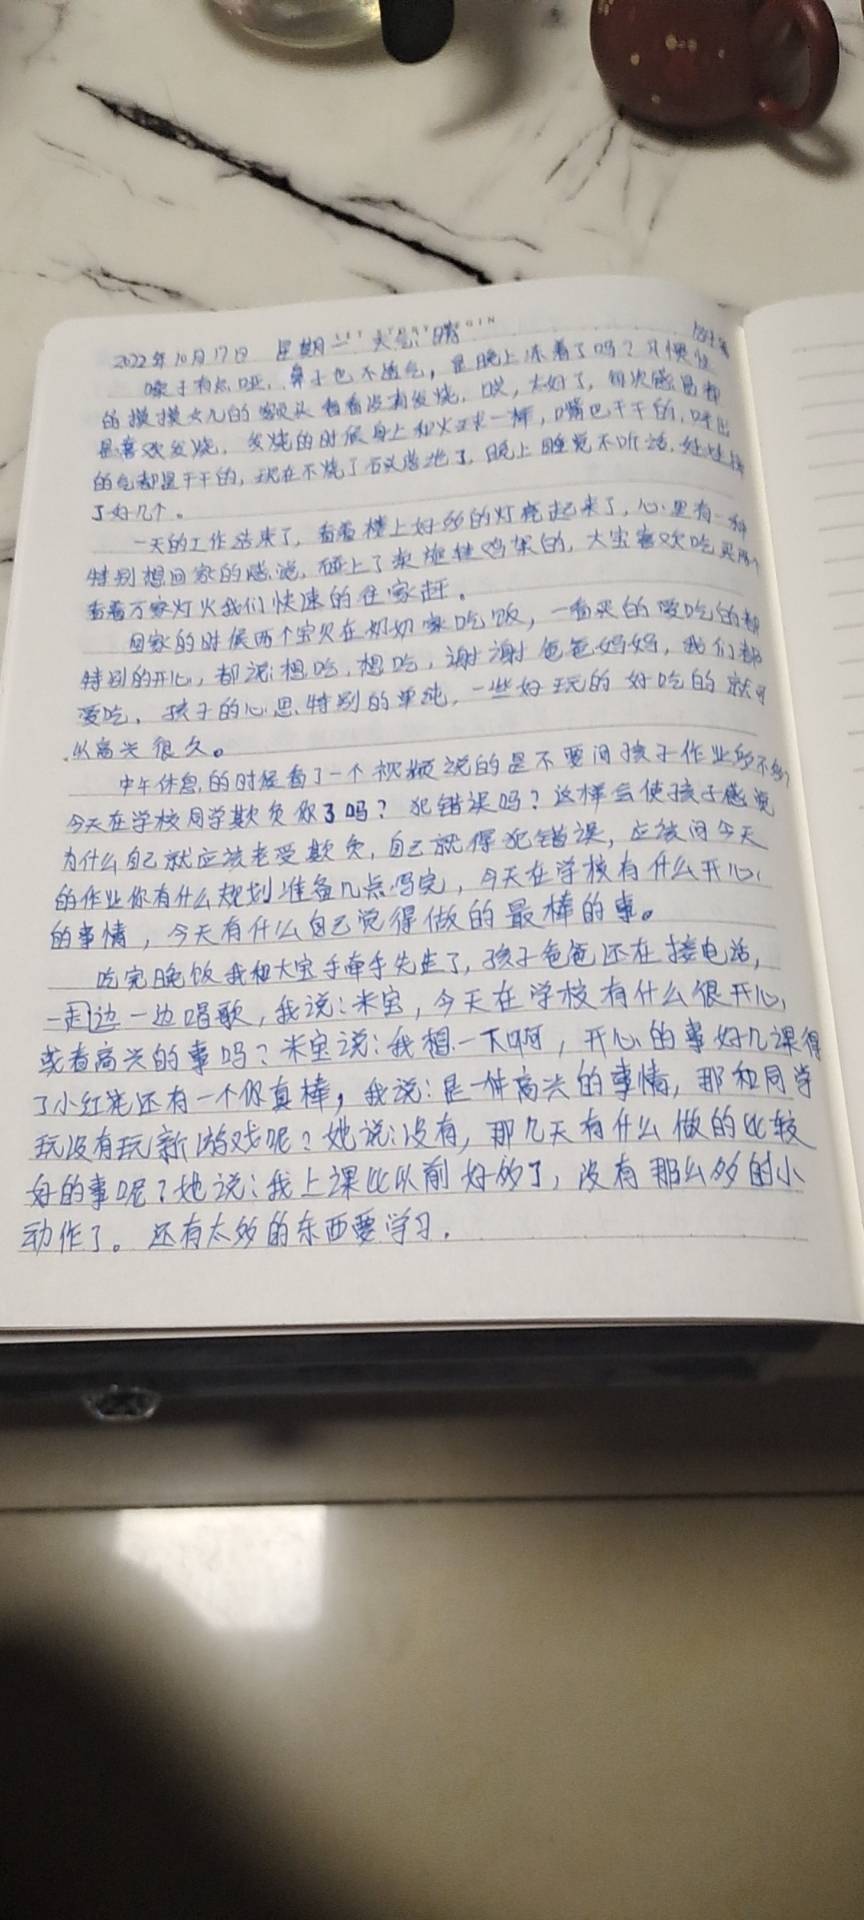 2022年10月17日 星期一 天气:晴
嗓子有点哑,鼻子也不透气,是晚上冻着了吗?习惯性
的摸摸女儿的额头看看没有发烧,哎,太好了,每次感冒都
是喜欢发烧,发烧的时候身上和火球一样,嘴巴干干的,呼出
的气都是干干的,现在不烧了,晚上睡觉不听话,
了好几个。
一天的工作结束了,看着楼上好多的灯亮起来了,心里有一种
特别想回家的感觉,碰上了卖旋转鸡架的,大宝喜欢吃买两个
看着万家灯火我们快速的往家赶。
回家的时候两个宝贝在奶奶家吃饭,一看买的爱吃的都
特别的开心,都说:想吃,想吃,谢谢爸爸妈妈,我们都
爱吃,孩子的心思特别的单纯,一些好玩的好吃的就可
以高兴很久。
中午休息的时候看了一个视频说的是不要问孩子作业多不多?
今天在学校同学欺负你了吗?犯错误吗?这样会使孩子感觉
为什么自己就应该老受欺负,自己就得犯错误,应该问今天
的作业你有什么规划准备几点写完,今天在学校有什么开心
的事情,今天有什么自己觉得做的最棒的事。
吃完晚饭我和大宝手牵手先走了,孩子爸爸还在接电话,
一走边一边唱歌,我说:米宝,今天在学校有什么很开心,
或者高兴的事吗?米宝说:我想一下啊,开心的事好几课得
了小红花还有一个你真棒,我说:是一件高兴的事情,那和同学
玩没有玩新游戏呢?她说:没有,那几天有什么做的比较
好的事呢?她说:我上课比以前好多了,没有那么多的小
动作了。还有太多的东西要学习.